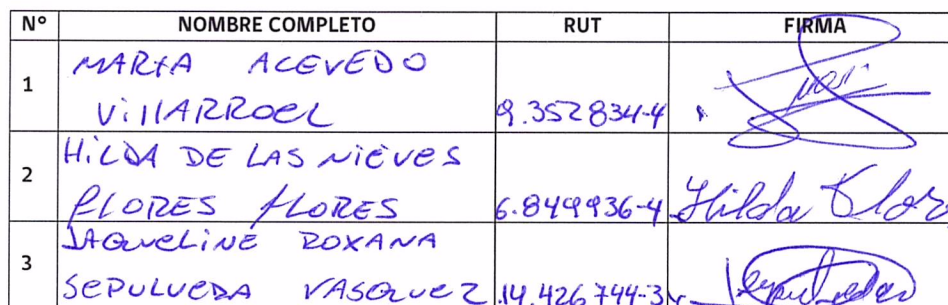 N° NOMBRE COMPLETO RUT FIRMA
1 MARIA ACEVEDO
VillARROEL 9.352834-4
2 HiLDA DE LAS NIEVES
FLORES FLORES 6.849936-4 Hilda Flor
3 JAQUELINE ROXANA
SEPULVEDA VASQUEZ 14.426744-3